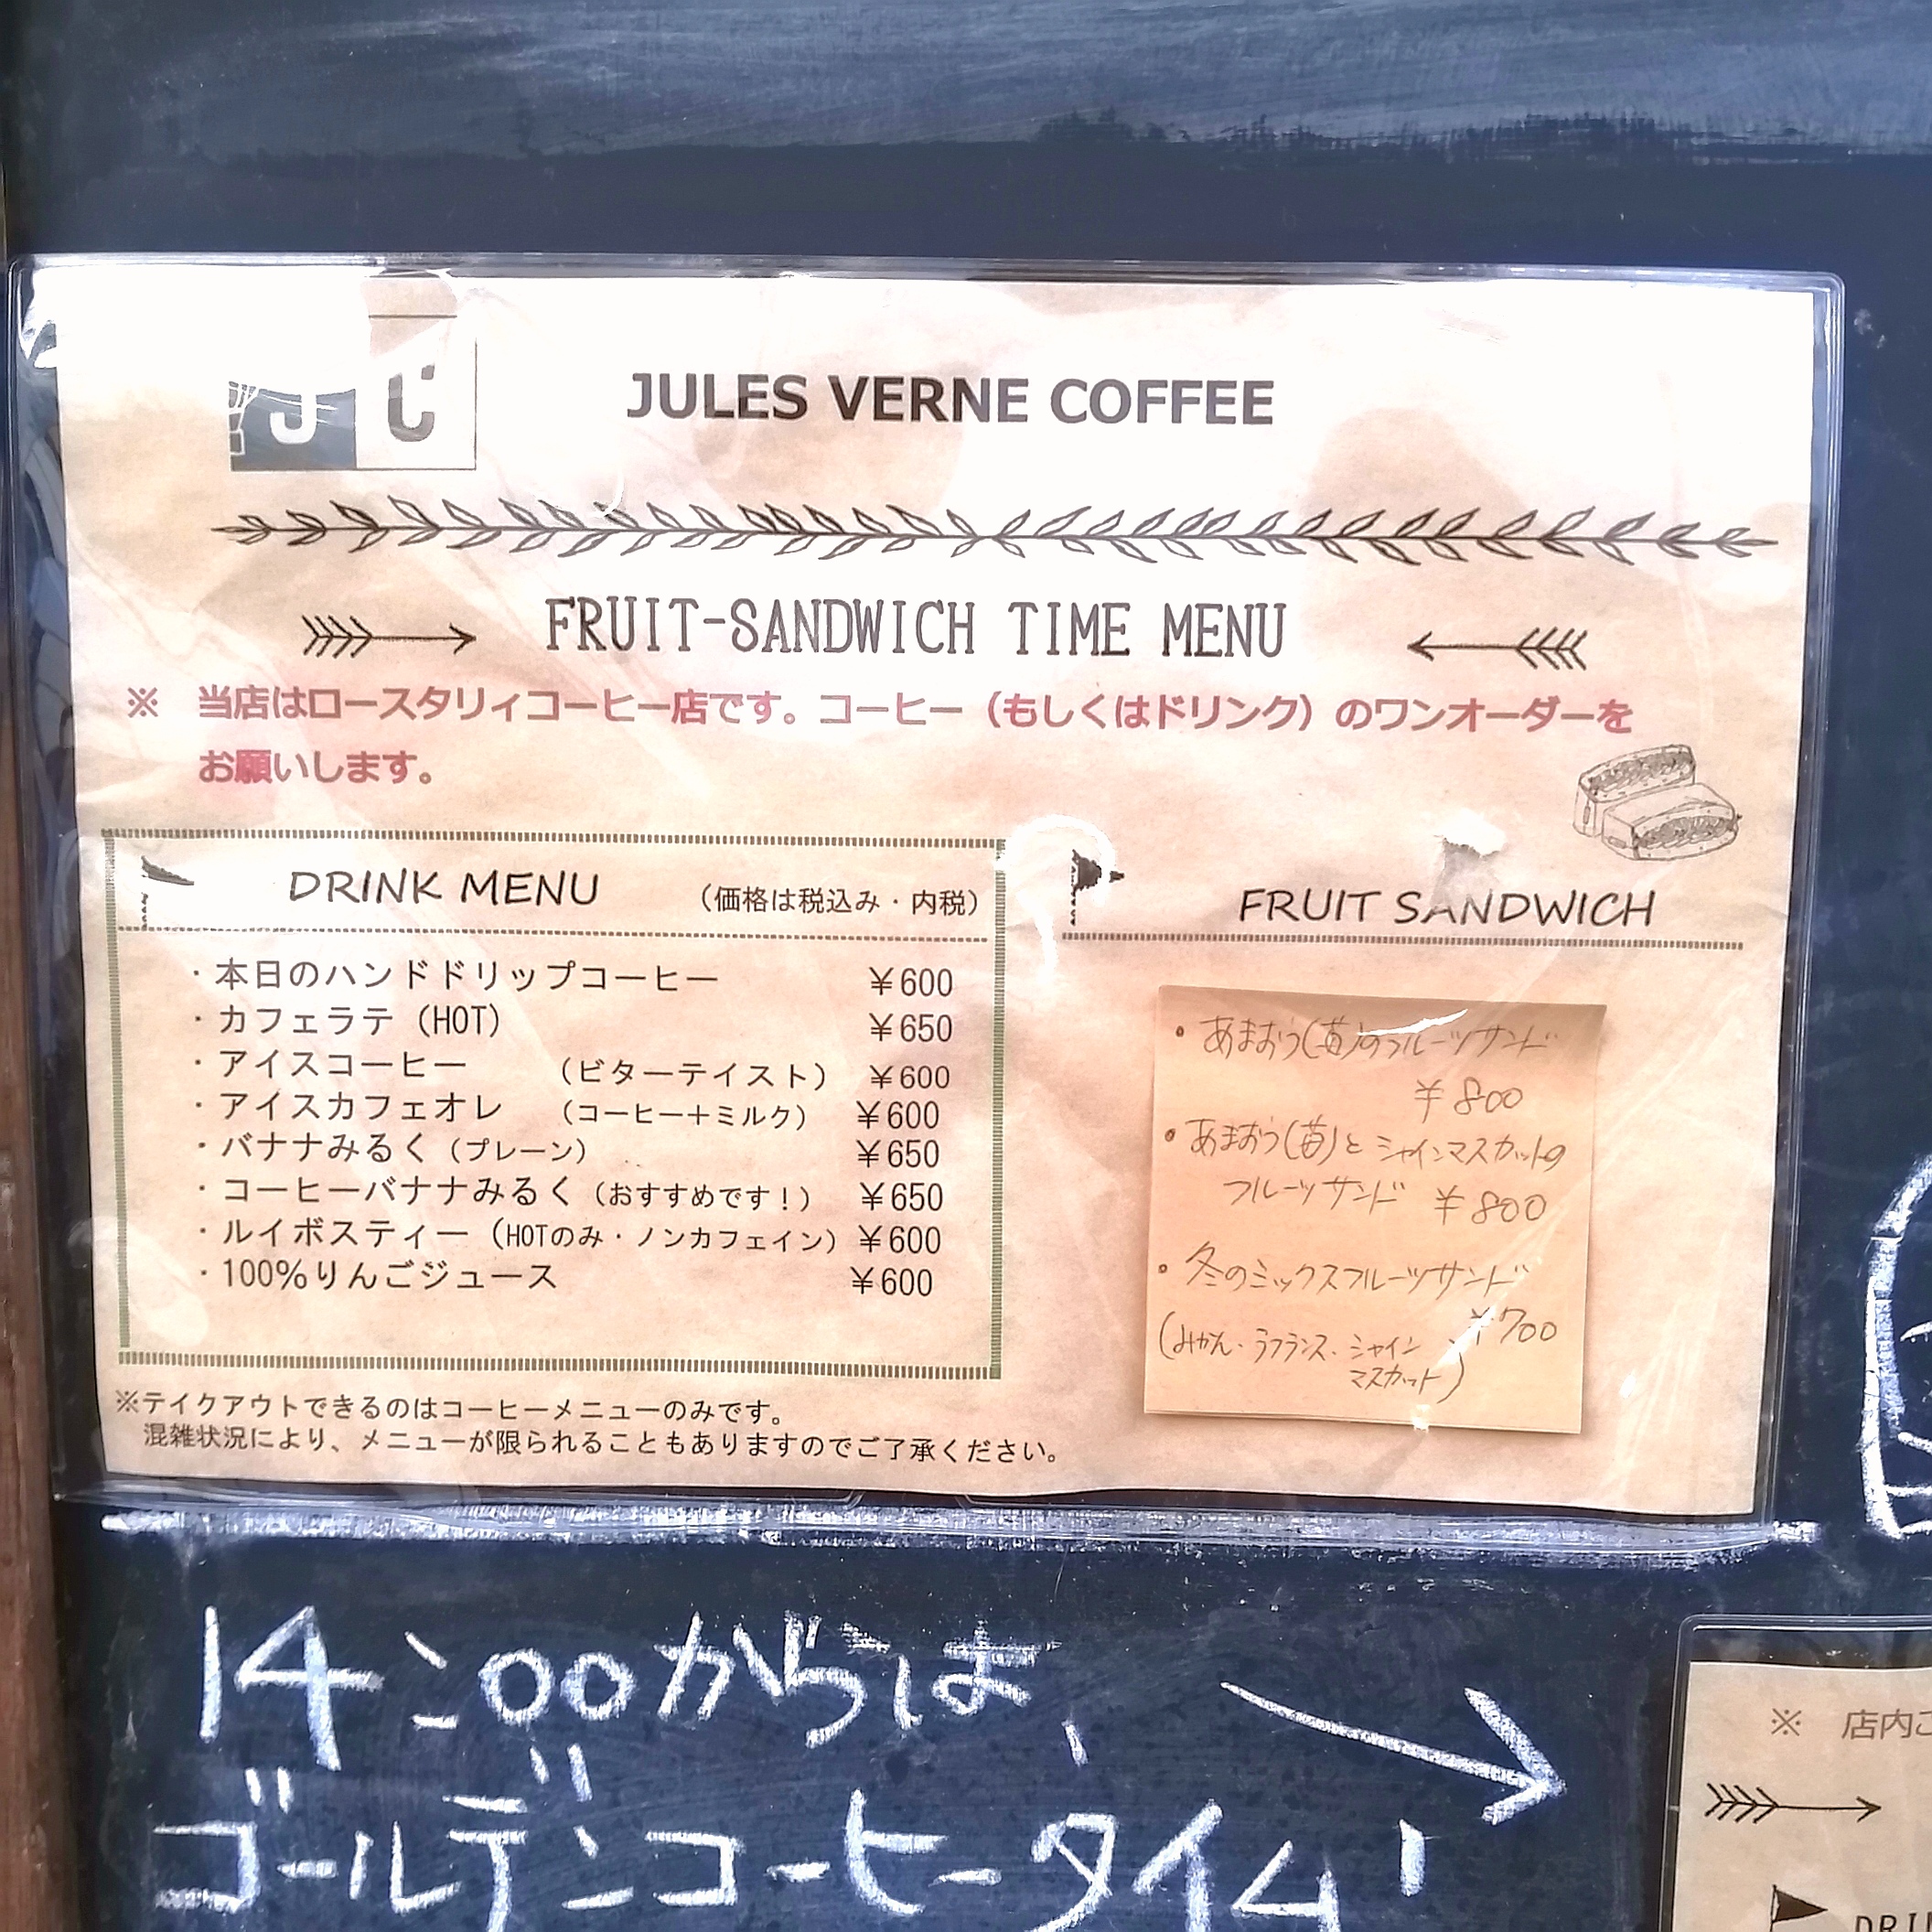 J C
JULES VERNE COFFEE
FRUIT-SANDWICH TIME MENU
※ 当店はロースタリィコーヒー店です。コーヒー（もしくはドリンク）のワンオーダーを
お願いします。
DRINK MENU （価格は税込み・内税）
・本日のハンドドリップコーヒー ￥600
・カフェラテ（HOT） ￥650
・アイスコーヒー （ビターテイスト） ￥600
・アイスカフェオレ （コーヒー＋ミルク） ￥600
・バナナみるく（プレーン） ￥650
・コーヒーバナナみるく（おすすめです！） ￥650
・ルイボスティー（HOTのみ・ノンカフェイン） ￥600
・100%りんごジュース ￥600
※テイクアウトできるのはコーヒーメニューのみです。
混雑状況により、メニューが限られることもありますのでご了承ください。
FRUIT SANDWICH
・あまおう(苺)のフルーツサンド
￥800
・あまおう(苺)とシャインマスカットの
フルーツサンド ￥800
・冬のミックスフルーツサンド
￥700
(みかん・ラフランス・シャイン
マスカット)
14:00からは、
ゴールデンコーヒータイム!
※ 店内
DRI